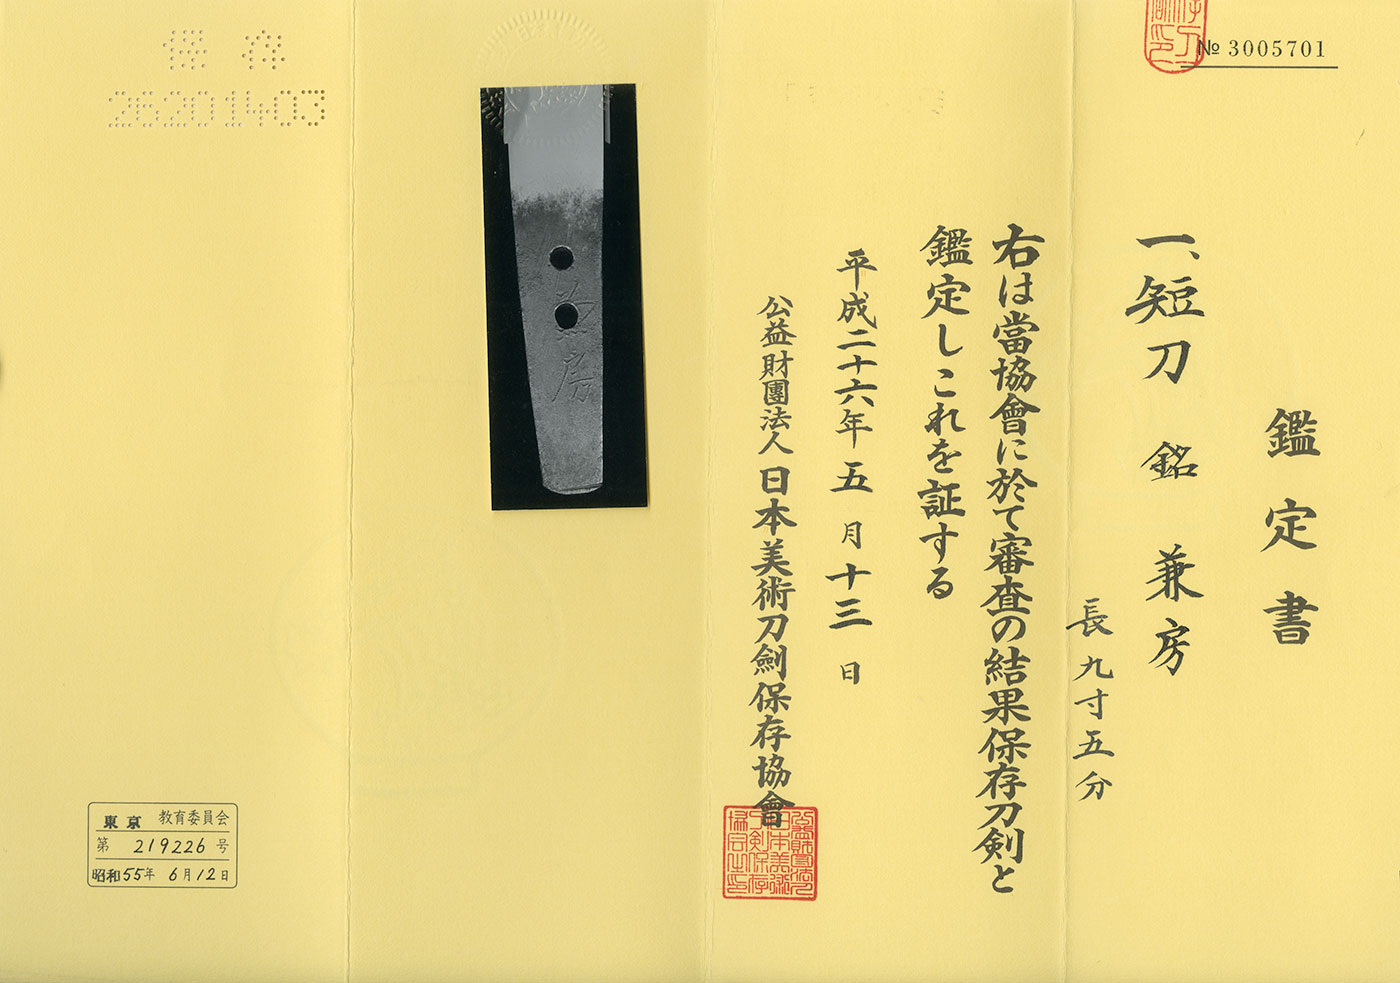 № 3005701
鑑定書
一、短刀 銘 兼房
長九寸五分
右は當協會に於て審査の結果保存刀剣と
鑑定しこれを証する
平成二十六年五月十三日
公益財團法人日本美術刀劍保存協會
兼房
保存
26201403
東京 教育委員会
第 219226 号
昭和55年 6月12日